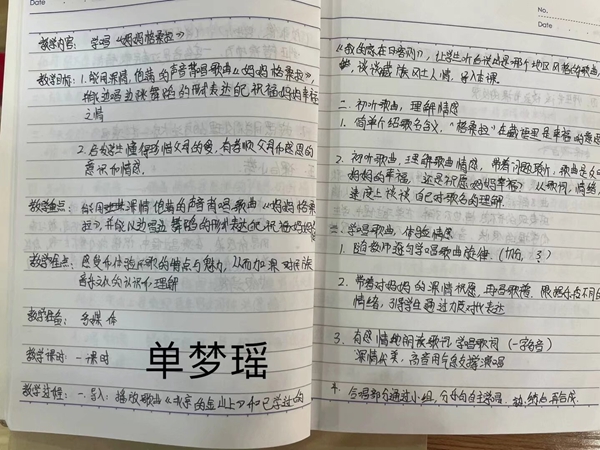 Date
教学内容: 学唱《妈妈格桑拉》
教学目标: 1.能用亲情、饱满的声音背唱歌曲《妈妈格桑拉》,
并以边唱边律舞蹈的形式表达祝福妈妈幸福
之情
2.启发学生懂得珍惜父母的爱,有着顺父母和感恩的
意识和情感.
教学重点: 能用深情、饱满的声音唱歌曲《妈妈格桑
拉》,并能以边唱边舞蹈的形式表达祝福妈妈
教学难点: 感受和体验民歌的特点与魅力,从而加深对民族
音乐文化的认识和理解
教学准备: 多媒体
教学课时: 一课时
单梦瑶
教学过程: 一.导入: 播放歌曲《北京的金山上》和已学过的
No.
Date
《我的家在日喀则》,让学生听后说出是哪个地区风格的歌曲,
谈谈藏族风土人情,导入本课.
二.初听歌曲,理解情感
1.简单介绍歌名含义,"格桑拉"在藏语里是幸福的意思
2.初听歌曲,理解歌曲情感,带着问题聆听,歌曲是
妈妈的幸福,还是祝愿妈妈幸福? 从歌词,情绪,
速度上谈谈自己对歌名的理解
三.学唱歌曲,体验情感
1.跟教师逐句学唱歌曲旋律.
2.带着对妈妈的深情祝愿,再唱歌谱,根据乐句不同的
情绪,引导学生通过力度对比表达
3.有感情地朗读歌词 学唱歌词(一字多音)
深情优美,高音用气息支撑演唱
4.合唱部分通过小组,分声部自主学唱,再合成.